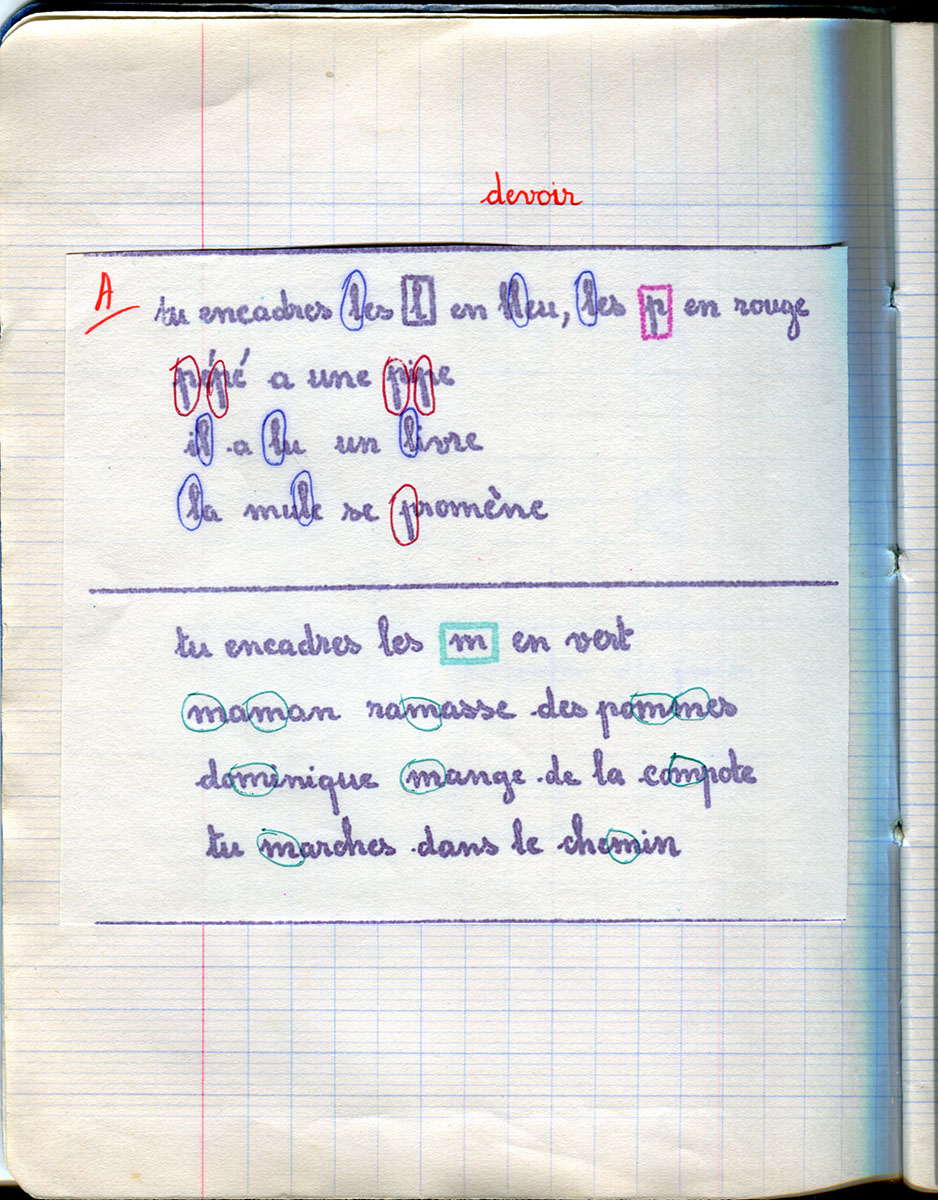 devoir
A tu encadres les l en bleu, les p en rouge
pépé a une pipe
il a lu un livre
la mule se promène
tu encadres les m en vert
maman ramasse des pommes
dominique mange de la compote
tu marches dans le chemin